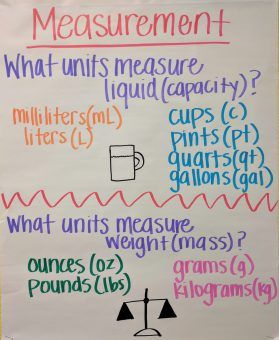 Measurement
What units measure
liquid (capacity)?
milliliters (mL)
liters (L)
cups (c)
pints (pt)
quarts (qt)
gallons (gal)
What units measure
weight (mass)?
ounces (oz)
pounds (lbs)
grams (g)
kilograms (kg)